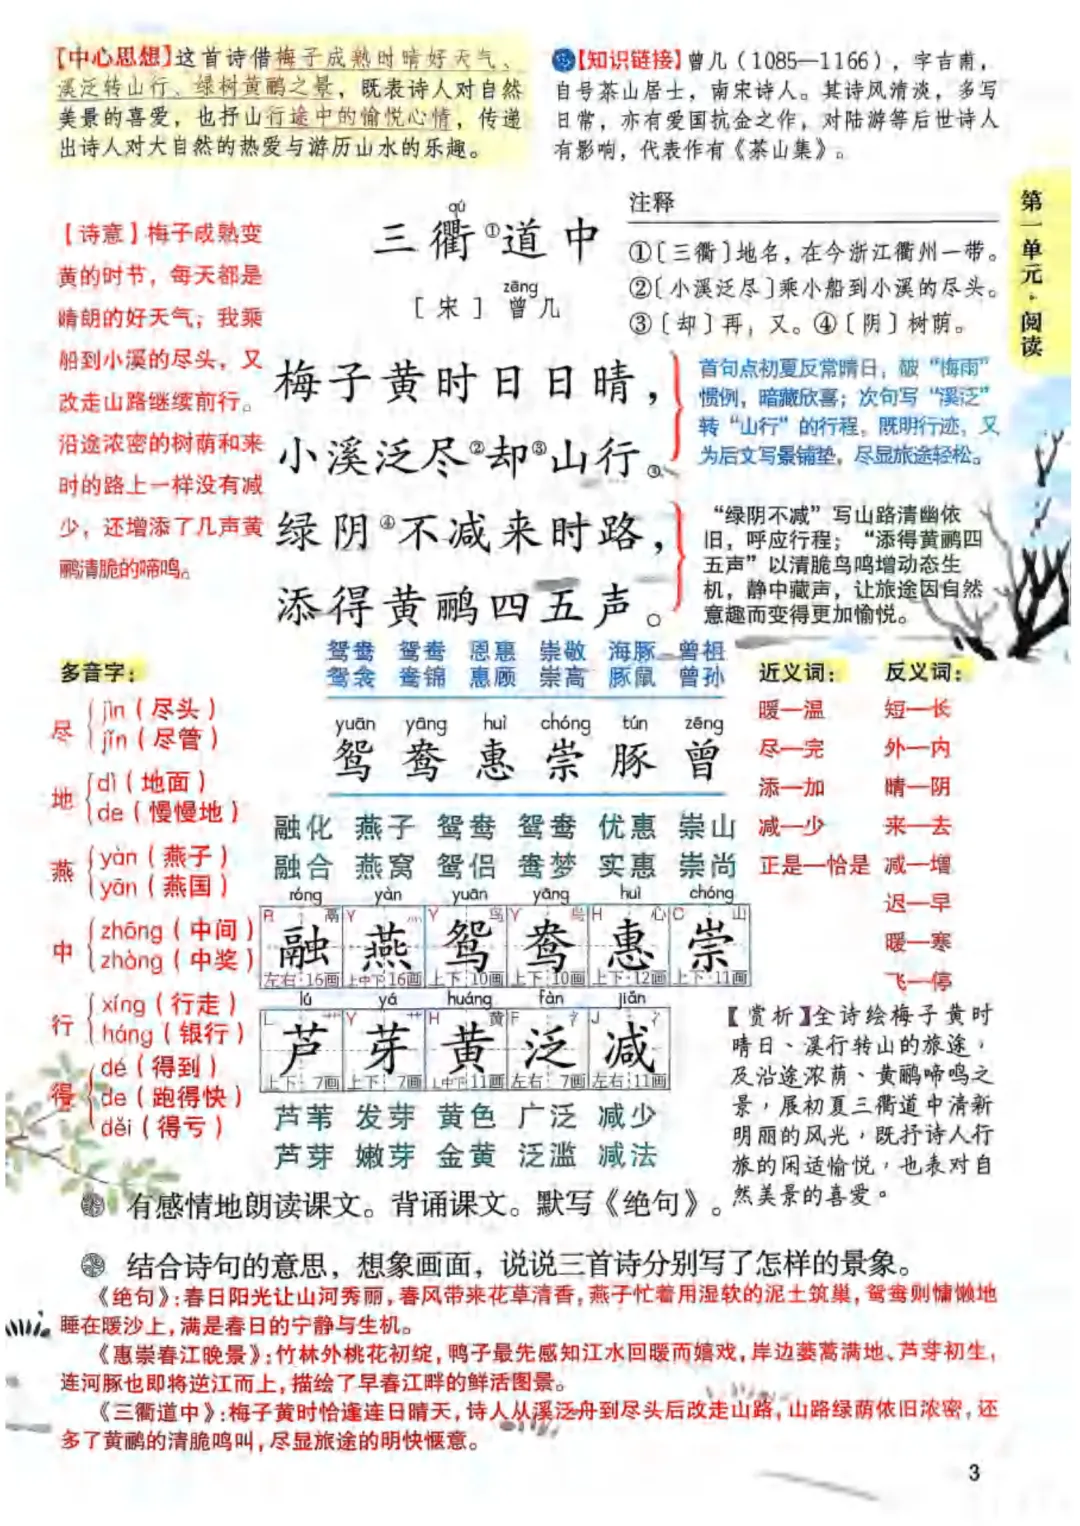 【中心思想】这首诗借梅子成熟时晴好天气、
溪泛转山行、绿树黄鹂之景，既表诗人对自然
美景的喜爱，也抒山行途中的愉悦心情，传递
出诗人对大自然的热爱与游历山水的乐趣。
【知识链接】曾几（1085—1166），字吉甫，
自号茶山居士，南宋诗人。其诗风清淡，多写
日常，亦有爱国抗金之作，对陆游等后世诗人
有影响，代表作有《茶山集》。
第一单元·阅读
【诗意】梅子成熟变
黄的时节，每天都是
晴朗的好天气，我乘
船到小溪的尽头，又
改走山路继续前行。
沿途浓密的树荫和来
时的路上一样没有减
少，还增添了几声黄
鹂清脆的啼鸣。
qú
三衢①道中
zēng
［宋］曾几
注释
①〔三衢〕地名，在今浙江衢州一带。
②〔小溪泛尽〕乘小船到小溪的尽头。
③〔却〕再，又。④〔阴〕树荫。
梅子黄时日日晴，
小溪泛尽②却③山行。
绿阴④不减来时路，
添得黄鹂四五声。
首句点初夏反常晴日，破“梅雨”
惯例，暗藏欣喜；次句写“溪泛”
转“山行”的行程，既明行迹，又
为后文写景铺垫，尽显旅途轻松。
“绿阴不减”写山路清幽依
旧，呼应行程；“添得黄鹂四
五声”以清脆鸟鸣增动态生
机，静中藏声，让旅途因自然
意趣而变得更加愉悦。
多音字：
尽 jìn（尽头）
jǐn（尽管）
地 dì（地面）
de（慢慢地）
燕 yàn（燕子）
yān（燕国）
中 zhōng（中间）
zhòng（中奖）
行 xíng（行走）
háng（银行）
得 dé（得到）
de（跑得快）
děi（得亏）
鸳鸯 鸳鸯 恩惠 崇敬 海豚 曾祖
鸳衾 鸯锦 惠顾 崇高 豚鼠 曾孙
yuān yāng huì chóng tún zēng
鸳 鸯 惠 崇 豚 曾
融化 燕子 鸳鸯 鸳鸯 优惠 崇山
融合 燕窝 鸳侣 鸯梦 实惠 崇尚
róng yàn yuān yāng huì chóng
R 鬲 Y 灬 Y 鸟 Y 鸟 H 心 C 山
融 燕 鸳 鸯 惠 崇
左右·16画 上中下·16画 上下·10画 上下·10画 上下·12画 上下·11画
lú yá huáng fàn jiǎn
L 艹 Y 艹 H 黄 F 氵 J 冫
芦 芽 黄 泛 减
上下·7画 上下·7画 上中下·11画 左右·7画 左右·11画
芦苇 发芽 黄色 广泛 减少
芦芽 嫩芽 金黄 泛滥 减法
近义词：
暖—温
尽—完
添—加
减—少
正是—恰是
反义词：
短—长
外—内
晴—阴
来—去
减—增
迟—早
暖—寒
飞—停
【赏析】全诗绘梅子黄时
晴日、溪行转山的旅途，
及沿途浓荫、黄鹂啼鸣之
景，展初夏三衢道中清新
明丽的风光，既抒诗人行
旅的闲适愉悦，也表对自
然美景的喜爱。
有感情地朗读课文。背诵课文。默写《绝句》。
结合诗句的意思，想象画面，说说三首诗分别写了怎样的景象。
《绝句》：春日阳光让山河秀丽，春风带来花草清香，燕子忙着用湿软的泥土筑巢，鸳鸯则慵懒地
睡在暖沙上，满是春日的宁静与生机。
《惠崇春江晚景》：竹林外桃花初绽，鸭子最先感知江水回暖而嬉戏，岸边蒌蒿满地、芦芽初生，
连河豚也即将逆江而上，描绘了早春江畔的鲜活图景。
《三衢道中》：梅子黄时恰逢连日晴天，诗人从溪泛舟到尽头后改走山路，山路绿荫依旧浓密，还
多了黄鹂的清脆鸣叫，尽显旅途的明快惬意。
3